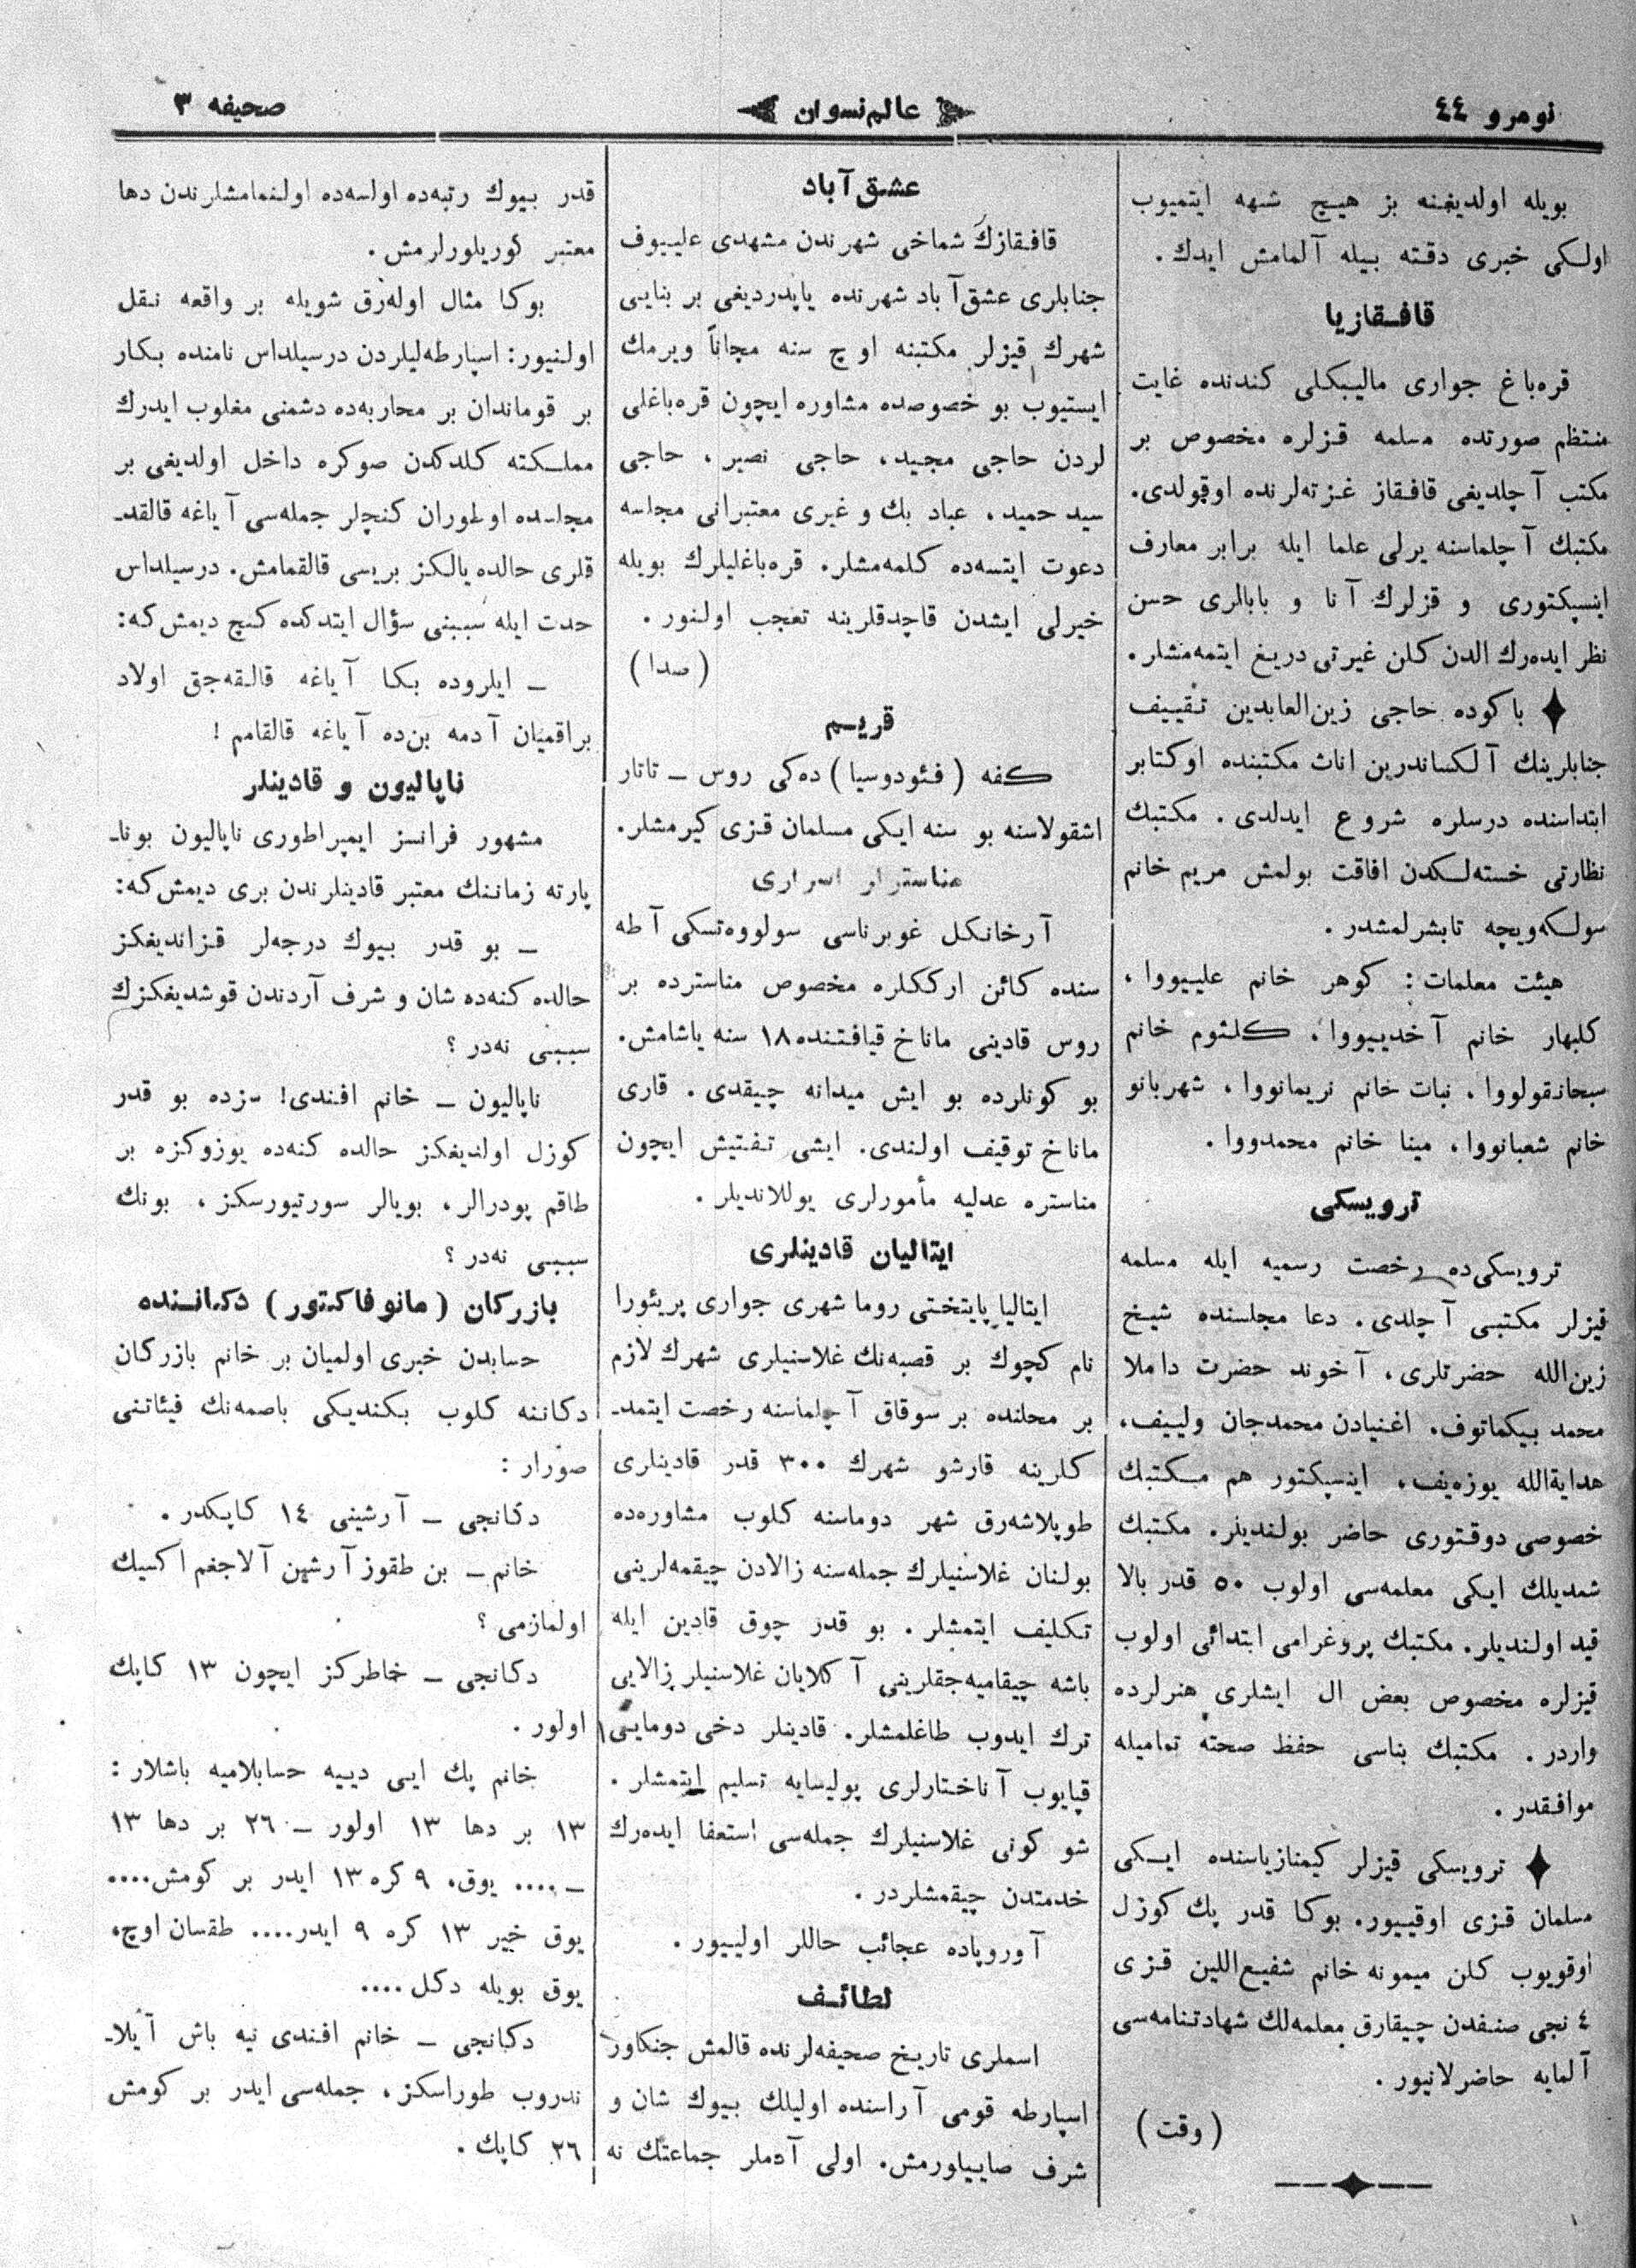 نومرو ٤٤
عالم نسوان
صحیفه ٣
بویله اولدیغنه بز هیچ شبهه ایتمیوب
اولکی خبری دقته بیله آلمامش ایدك .
قافقازیا
قره‌باغ جواری مالیبکلی کندنده غایت
منتظم صورتده مسلمه قزلره مخصوص بر
مکتب آچلدیغی قافقاز غزته‌لرنده اوقولدی.
مکتبك آچلماسنه یرلی علما ایله برابر معارف
اینسپکتوری و قزلرك آنا و بابالری حسن
نظر ایده‌رك الدن کلن غیرتی دریغ ایتمه‌مشلر.
باکوده حاجی زین‌العابدین تقییف
جنابلرینك آلکساندرین اناث مکتبنده اوکتابر
ابتداسنده درسلره شروع ایدلدی. مکتبك
نظارتی خسته‌لکدن افاقت بولمش مریم خانم
سولکه‌ویچه تابشرلمشدر .
هیئت معلمات: کوهر خانم علییووا،
کلبهار خانم آخدییووا، کلثوم خانم
سبحانقولووا، نبات خانم نریمانووا، شهربانو
خانم شعبانووا، مینا خانم محمدووا .
ترویسکی
ترویسکی‌ده رخصت رسمیه ایله مسلمه
قیزلر مکتبی آچلدی. دعا مجلسنده شیخ
زین‌الله حضرتلری، آخوند حضرت داملا
محمد بیکماتوف. اغنیادن محمدجان ولییف،
هدایة‌الله یوزه‌یف، اینسپکتور هم مکتبك
خصوصی دوقتوری حاضر بولندیلر. مکتبك
شمدیلك ایکی معلمه‌سی اولوب ٥٠ قدر بالا
قید اولندیلر. مکتبك پروغرامی ابتدائی اولوب
قیزلره مخصوص بعض ال ایشلری هنرلرده
واردر . مکتبك بناسی حفظ صحته تمامیله
موافقدر .
ترویسکی قیزلر کیمنازیاسنده ایکی
مسلمان قزی اوقییور. بوکا قدر پك کوزل
اوقویوب کلن میمونه خانم شفیع‌اللین قزی
٤ نجی صنفدن چیقارق معلمه‌لك شهادتنامه‌سی
آلمایه حاضرلانیور .
(وقت)
عشق‌آباد
قافقازك شماخی شهرندن مشهدی علییوف
جنابلری عشق‌آباد شهرنده یاپدردیغی بر بنایی
شهرك قیزلر مکتبنه اوچ سنه مجاناً ویرمك
ایستیوب بو خصوصده مشاوره ایچون قره‌باغلی
لردن حاجی مجید، حاجی نصیر، حاجی
سید حمید، عباد بك و غیری معتبرانی مجلسه
دعوت ایتسه‌ده کلمه‌مشلر. قره‌باغلیلرك بویله
خیرلی ایشدن قاچدقلرینه تعجب اولنور .
(صدا)
قریم
کفه (فئودوسیا) ده‌کی روس ـ تاتار
اشقولاسنه بو سنه ایکی مسلمان قزی کیرمشلر.
مناسترلر اسراری
آرخانکل غوبرناسی سولووه‌تسکی آطه
سنده کائن ارککلره مخصوص مناسترده بر
روس قادینی ماناخ قیافتنده ١٨ سنه یاشامش.
بو کونلرده بو ایش میدانه چیقدی. قاری
ماناخ توقیف اولندی. ایشی تفتیش ایچون
مناستره عدلیه مأمورلری یوللاندیلر .
ایتالیان قادینلری
ایتالیا پایتختی روما شهری جواری پریئورا
نام کچوك بر قصبه‌نك غلاسنیلری شهرك لازم
بر محلنده بر سوقاق آچلماسنه رخصت ایتمد‍ـ
کلرینه قارشو شهرك ٣٠٠ قدر قادینلری
طوپلاشه‌رق شهر دوماسنه کلوب مشاوره‌ده
بولنان غلاسنیلرك جمله‌سنه زالادن چیقمه‌لرینی
تکلیف ایتمشلر. بو قدر چوق قادین ایله
باشه چیقامیه‌جقلرینی آکلایان غلاسنیلر زالایی
ترك ایدوب طاغلمشلر. قادینلر دخی دومایی
قپایوب آناختارلری پولیسایه تسلیم ایتمشلر .
شو کونی غلاسنیلرك جمله‌سی استعفا ایده‌رك
خدمتدن چیقمشلردر .
آوروپاده عجائب حاللر اولییور .
لطائف
اسملری تاریخ صحیفه‌لرنده قالمش جنکاور
اسپارطه قومی آراسنده اولیلك بیوك شان و
شرف صاییلورمش. اولی آدملر جماعتك نه
قدر بیوك رتبه‌ده اولسه‌ده اولنمامشلرندن دها
معتبر کوریلورلرمش.
بوکا مثال اوله‌رق شویله بر واقعه نقل
اولنیور: اسپارطه‌لیلردن درسیلداس نامنده بکار
بر قوماندان بر محاربه‌ده دشمنی مغلوب ایدرك
مملکته کلدکدن صوکره داخل اولدیغی بر
مجلسده اولطوران کنجلر جمله‌سی آیاغه قالقد‍ـ
قلری حالده یالکز بریسی قالقمامش. درسیلداس
حدت ایله سببنی سؤال ایتدکده کنج دیمش‌که:
ـ ایلروده بکا آیاغه قالقه‌جق اولاد
براقمیان آدمه بن‌ده آیاغه قالقامم !
ناپالیون و قادینلر
مشهور فرانسز ایمپراطوری ناپالیون بونا‍ـ
پارته زماننك معتبر قادینلرندن بری دیمش‌که:
ـ بو قدر بیوك درجه‌لر قزاندیغکز
حالده کنه‌ده شان و شرف آردندن قوشدیغکزك
سببی نه‌در ؟
ناپالیون ـ خانم افندی! سزده بو قدر
کوزل اولدیغکز حالده کنه‌ده یوزوکزه بر
طاقم پودرالر، بویالر سورتیورسکز، بونك
سببی نه‌در ؟
بازرکان (مانوفاکتور) دکاننده
حسابدن خبری اولمیان بر خانم بازرکان
دکاننه کلوب بکندیکی باصمه‌نك فیئاتنی
صورار :
دکانجی ـ آرشینی ١٤ کاپکدر .
خانم ـ بن طقوز آرشین آلاجغم اکسیك
اولمازمی ؟
دکانجی ـ خاطرکز ایچون ١٣ کاپك
اولور .
خانم پك ایی دییه حسابلامیه باشلار :
١٣ بر دها ١٣ اولور ـ ٢٦ بر دها ١٣
ـ .... یوق، ٩ کره ١٣ ایدر بر کومش....
یوق خیر ١٣ کره ٩ ایدر.... طقسان اوچ،
یوق بویله دکل ....
دکانجی ـ خانم افندی نیه باش آیلا‍ـ
ندروب طوراسکز، جمله‌سی ایدر بر کومش
٢٦ کاپك .